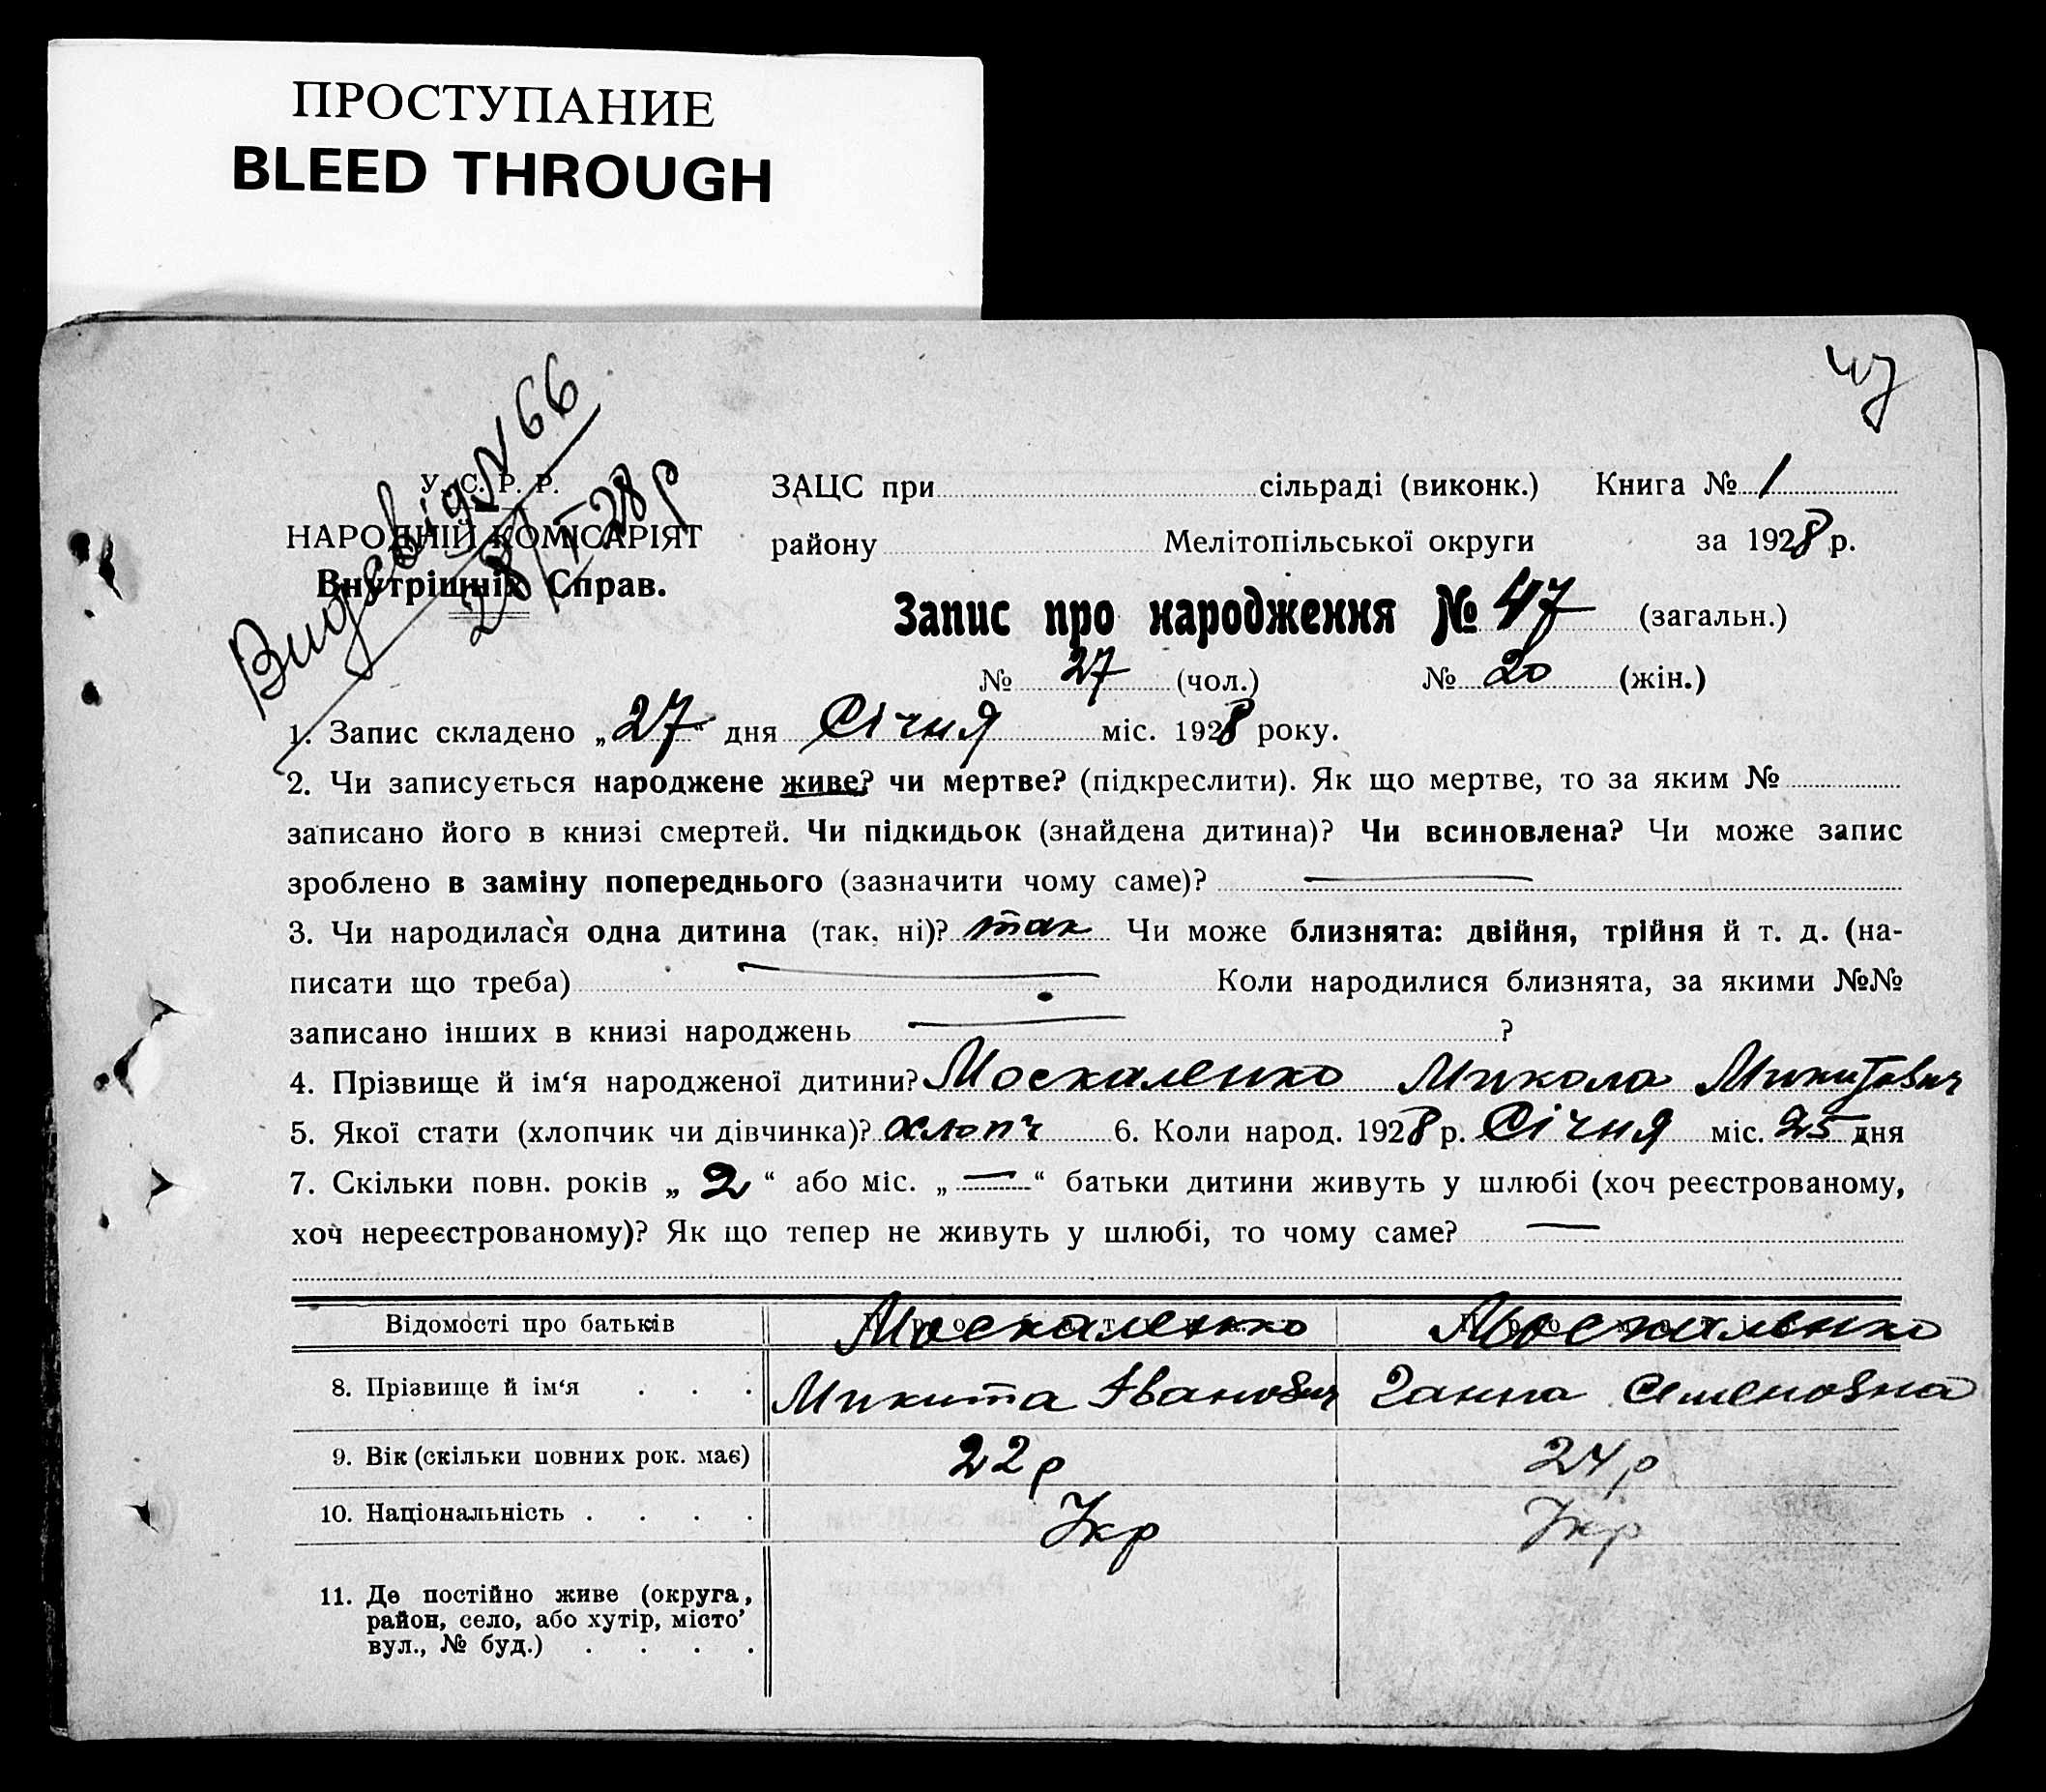 ПРОСТУПАНИЕ
BLEED THROUGH
47
Видсвід № 66
28/I 28 р
У. С. Р. Р.
НАРОДНІЙ КОМІСАРІЯТ
Внутрішніх Справ.
ЗАЦС при сільраді (виконк.) Книга № 1
району Мелітопільської округи за 1928 р.
Запис про народження № 47 (загальн.)
№ 27 (чол.) № 20 (жін.)
1. Запис складено „27“ дня Січня міс. 1928 року.
2. Чи записується народжене живе? чи мертве? (підкреслити). Як що мертве, то за яким №
записано його в книзі смертей. Чи підкидьок (знайдена дитина)? Чи всиновлена? Чи може запис
зроблено в заміну попереднього (зазначити чому саме)? —
3. Чи народилася одна дитина (так, ні)? так Чи може близнята: двійня, трійня й т. д. (на-
писати що треба) — Коли народилися близнята, за якими №№
записано інших в книзі народжень — ?
4. Прізвище й ім‘я народженої дитини? Москаленко Микола Микитович
5. Якої стати (хлопчик чи дівчинка)? хлопч 6. Коли народ. 1928 р. Січня міс. 25 дня
7. Скільки повн. років „2“ або міс. „—“ батьки дитини живуть у шлюбі (хоч реєстрованому,
хоч нереєстрованому)? Як що тепер не живуть у шлюбі, то чому саме? —
Відомості про батьків Москаленко Москаленко
8. Прізвище й ім‘я . . . Микита Іванович Ганна Семеновна
9. Вік (скільки повних рок. має) 22 р 24 р
10. Національність . . . . Укр Укр
11. Де постійно живе (округа,
район, село, або хутір, місто’
вул., № буд.) . . . .